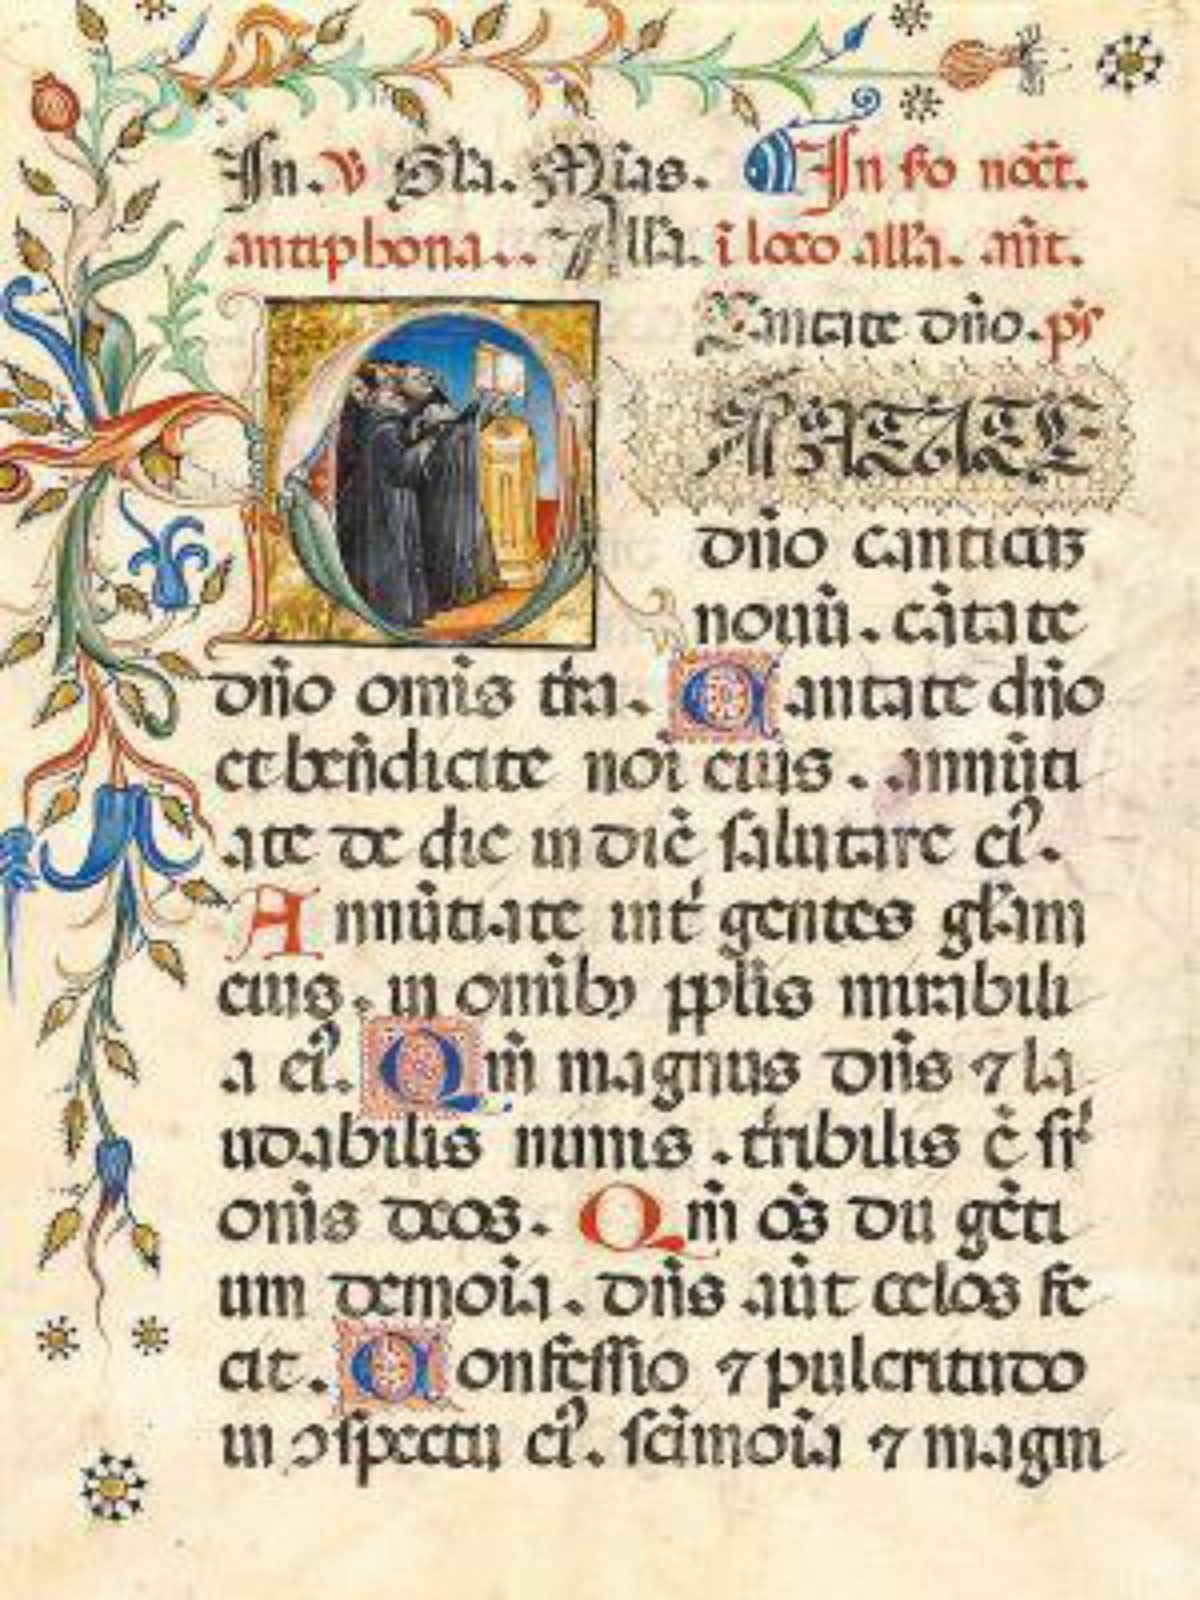 In. v Gl'a. Mias. In s'o noct.
antiphona.. All'a. i loco all'a. ant.
Cantate dn̄o. ps
CANTATE
dn̄o canticuʒ
nouū. cātate
dn̄o om̄is t'ra. Cantate dn̄o
et ben̄dicite noī eius. annūti
ate de die in diē salutare ei'.
Annūtiate int' gentes gl'am
eius. in om̄ibꝰ ppl'is mirabili
a ei'. Qm̄ magnus dn̄s ⁊ la
udabilis nimis. t'ribilis ē sr'
om̄s deos. Qm̄ oēs dii gēti
um demoīa. dn̄s aūt celos fe
cit. Confessio ⁊ pulcritudo
in ɔspectu ei'. sc̄imoīa ⁊ magni